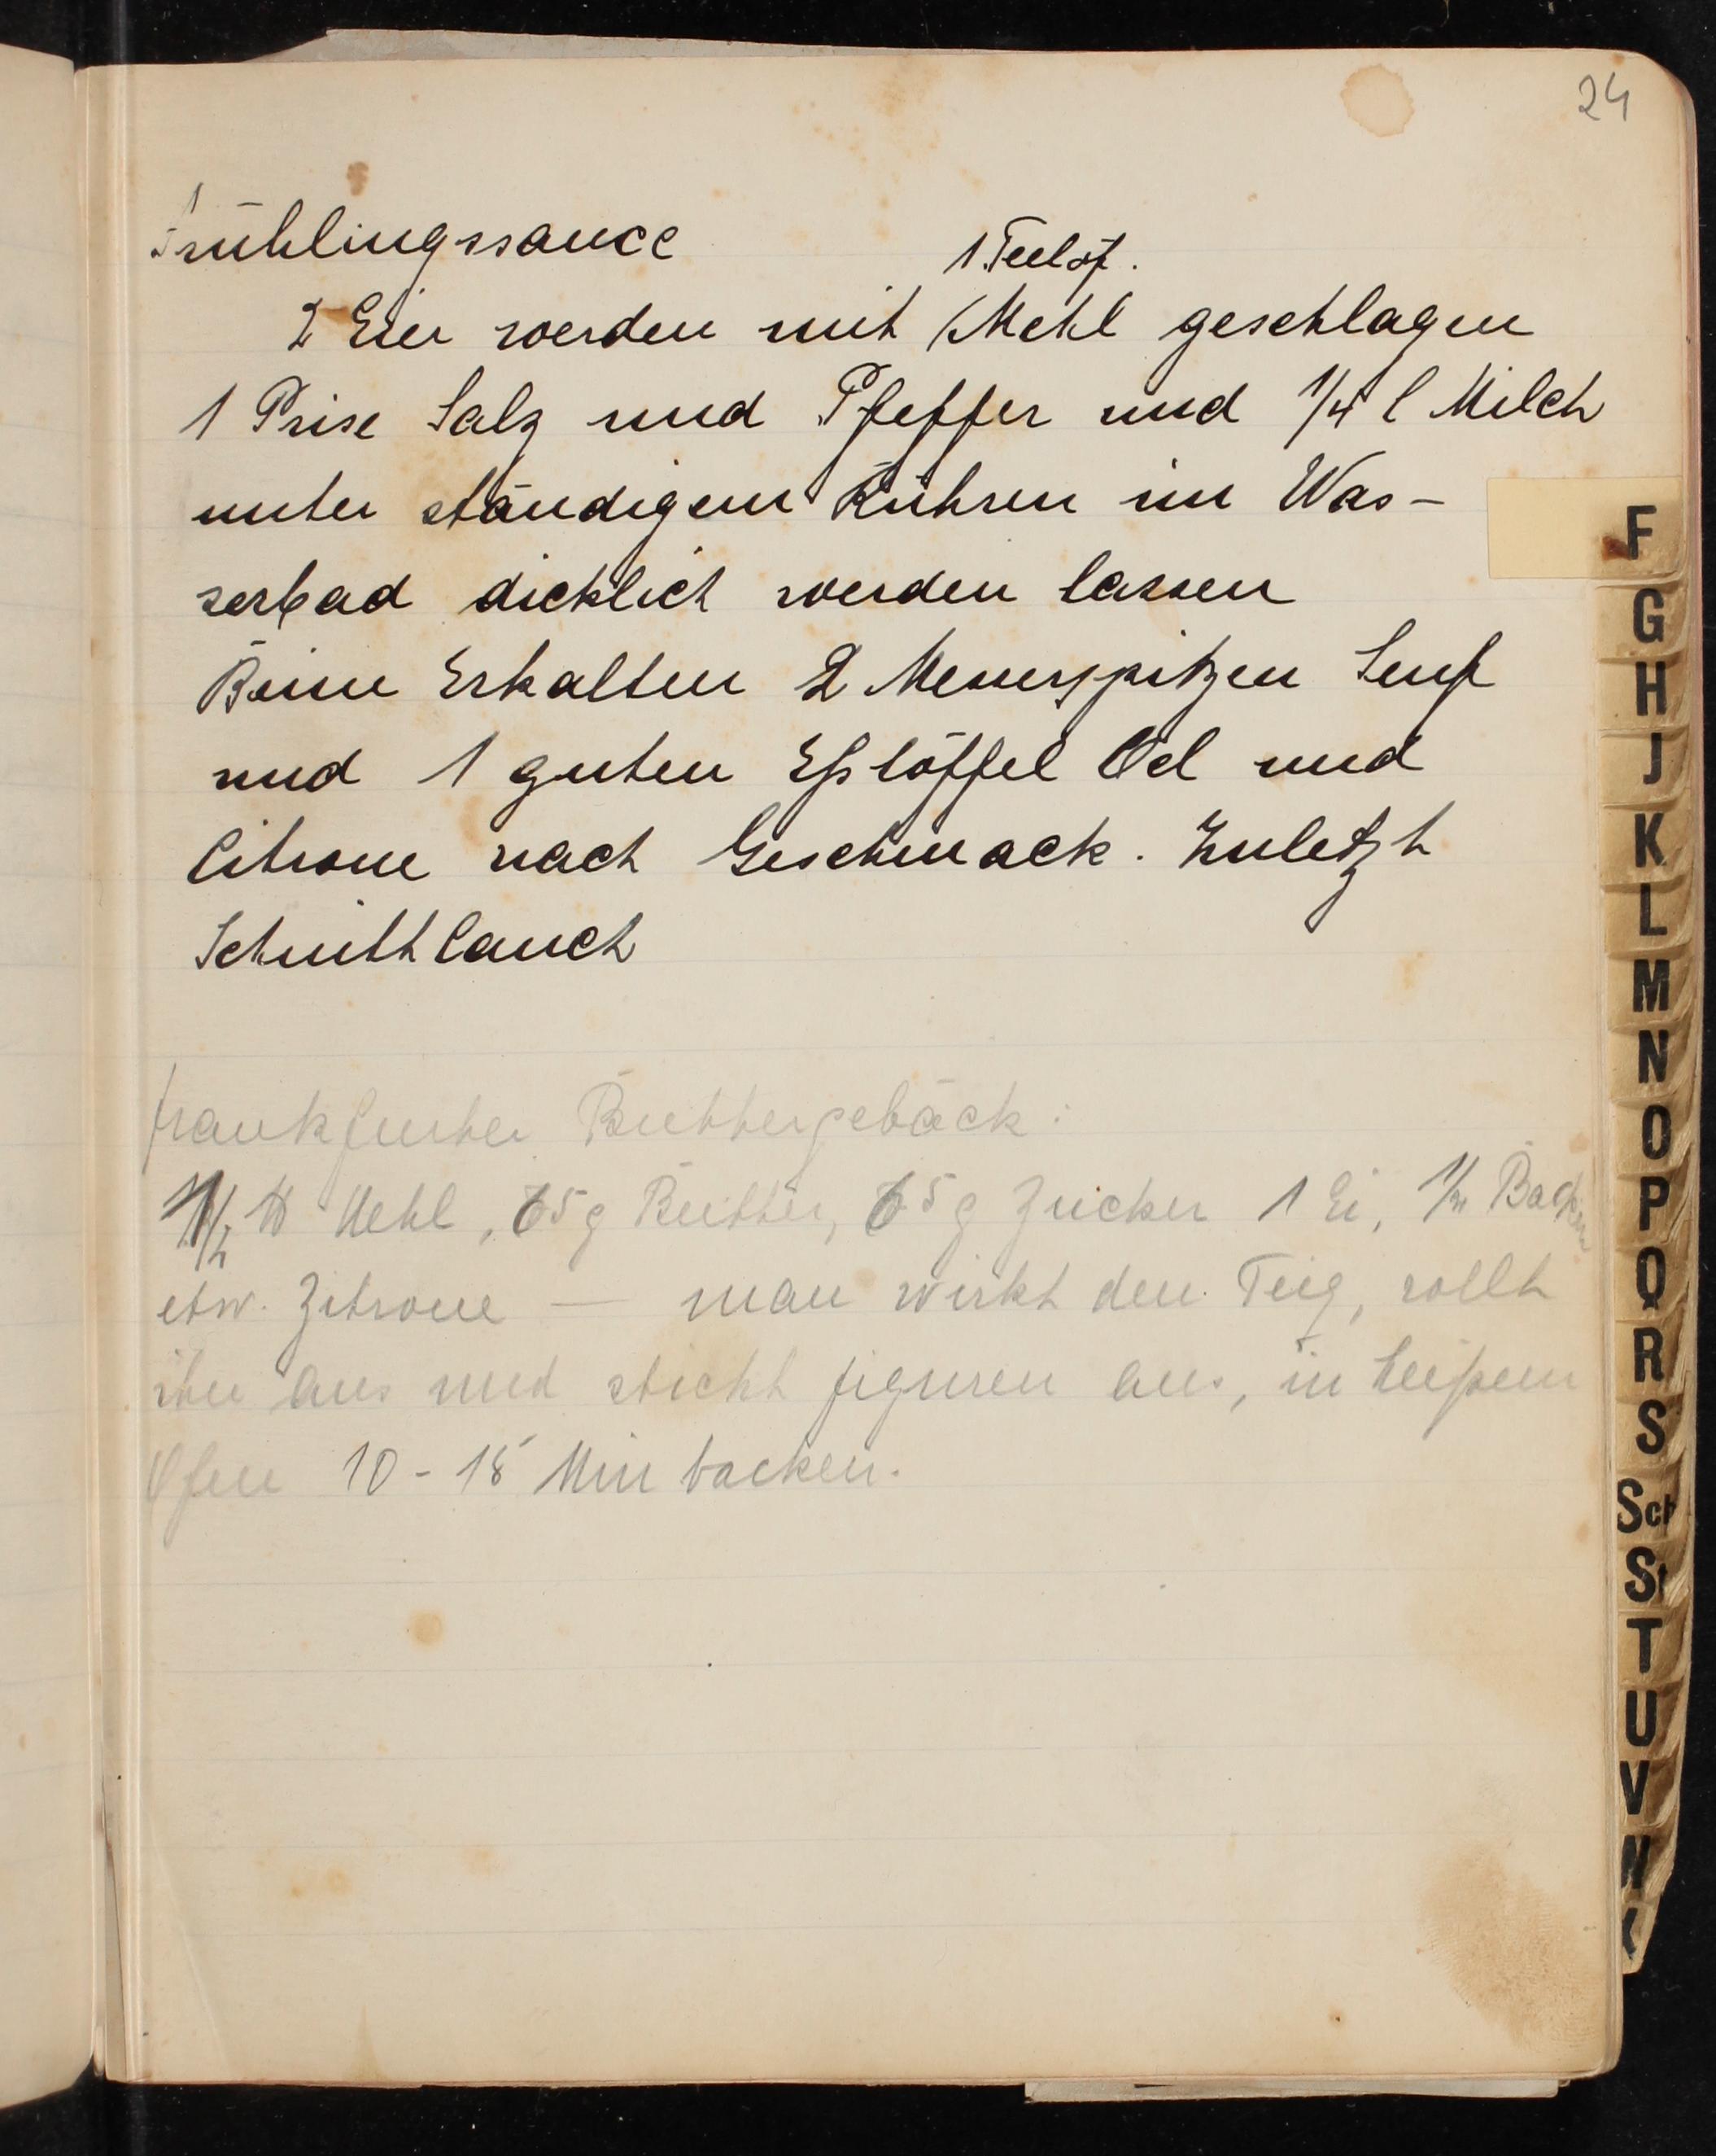 24
Frühlingssauce
1 Teelöf.
2 Eier werden mit Mehl geschlagen
1 Prise Salz und Pfeffer und 1/4 l Milch
unter ständigem Rühren im Was-
serbad dicklich werden lassen
Beim Erkalten 2 Messerspitzen Senf
und 1 guten Eßlöffel Oel und
Citrone nach Geschmack. Zuletzt
Schnittlauch
Frankfurter Buttergebäck:
1/2 ℔ Mehl, 65 g Butter, 65 g Zucker 1 Ei, 1/2 Backpulver
etw. Zitrone — man wirkt den Teig, rollt
ihn aus und sticht Figuren aus, in heißem
Ofen 10 - 15 Min backen.
F
G
H
J
K
L
M
N
O
P
Q
R
S
Sch
St
T
U
V
W